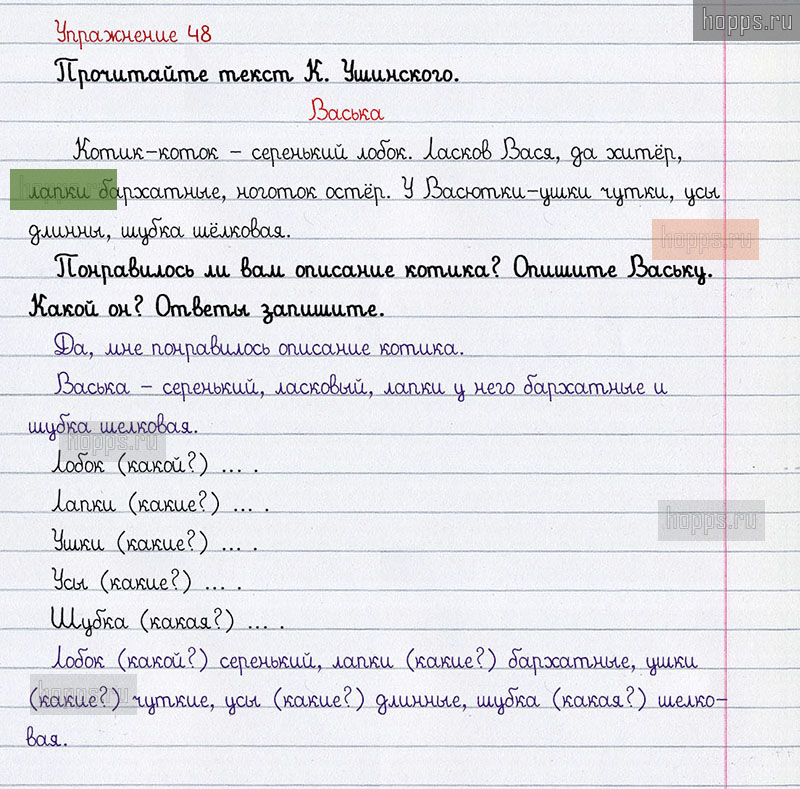 hopps.ru
Упражнение 48
Прочитайте текст К. Ушинского.
Васька
Котик-коток – серенький лобок. Ласков Вася, да хитёр,
лапки бархатные, ноготок остёр. У Васютки-ушки чутки, усы
длинны, шубка шёлковая.
hopps.ru
Понравилось ли вам описание котика? Опишите Ваську.
Какой он? Ответы запишите.
Да, мне понравилось описание котика.
Васька – серенький, ласковый, лапки у него бархатные и
шубка шелковая.
hopps.ru
Лобок (какой?) ... .
Лапки (какие?) ... .
hopps.ru
Ушки (какие?) ... .
Усы (какие?) ... .
Шубка (какая?) ... .
Лобок (какой?) серенький, лапки (какие?) бархатные, ушки
hopps.ru
(какие?) чуткие, усы (какие?) длинные, шубка (какая?) шелко-
вая.